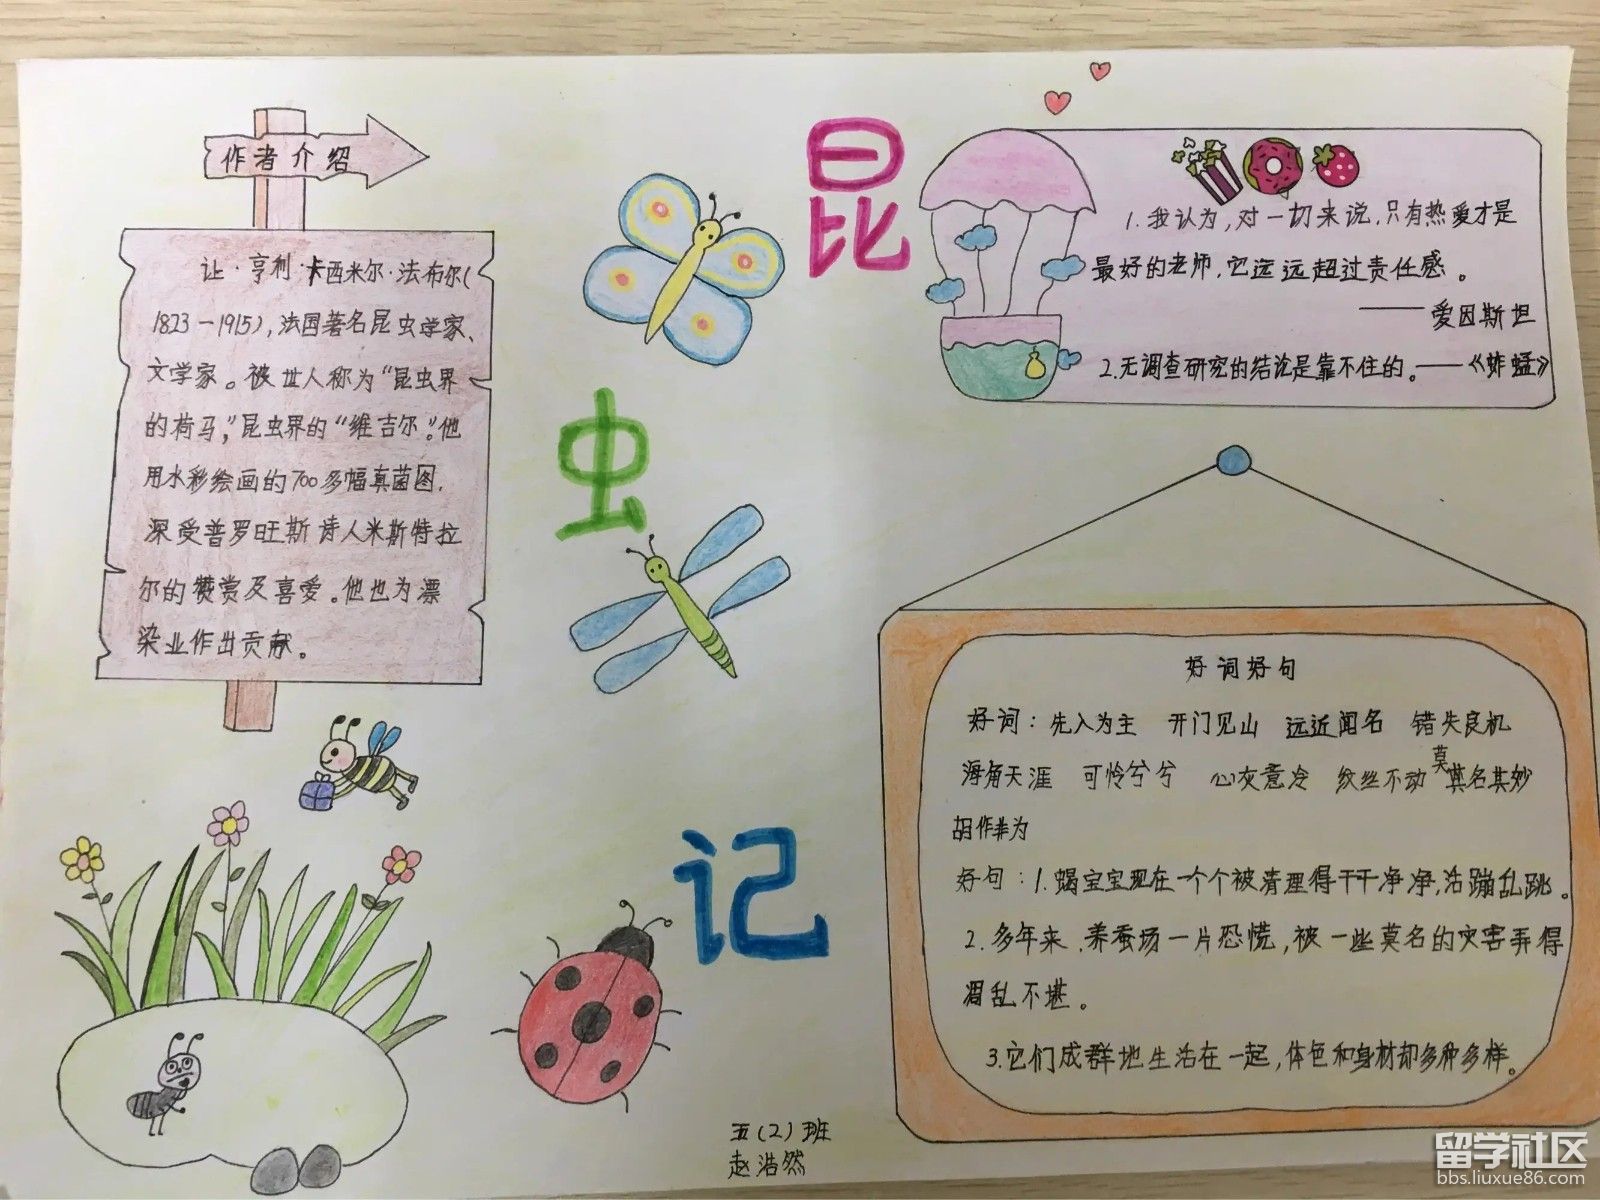 作者介绍
让·亨利·卡西米尔·法布尔(
1823-1915),法国著名昆虫学家、
文学家。被世人称为“昆虫界
的荷马,”昆虫界的“维吉尔”。他
用水彩绘画的700多幅真菌图,
深受普罗旺斯诗人米斯特拉
尔的赞赏及喜爱。他也为漂
染业作出贡献。
昆
虫
记
1.我认为,对一切来说,只有热爱才是
最好的老师,它远远超过责任感。
——爱因斯坦
2.无调查研究的结论是靠不住的。——《蚱蜢》
好词好句
好词:先入为主 开门见山 远近闻名 错失良机
海角天涯 可怜兮兮 心灰意冷 纹丝不动 莫名其妙
胡作非为
好句:1.蝎宝宝现在一个个被清理得干干净净,活蹦乱跳。
2.多年来,养蚕场一片恐慌,被一些莫名的灾害弄得
凋乱不堪。
3.它们成群地生活在一起,体色和身材却多种多样。
五(2)班
赵浩然
留学社区
bbs.liuxue86.com